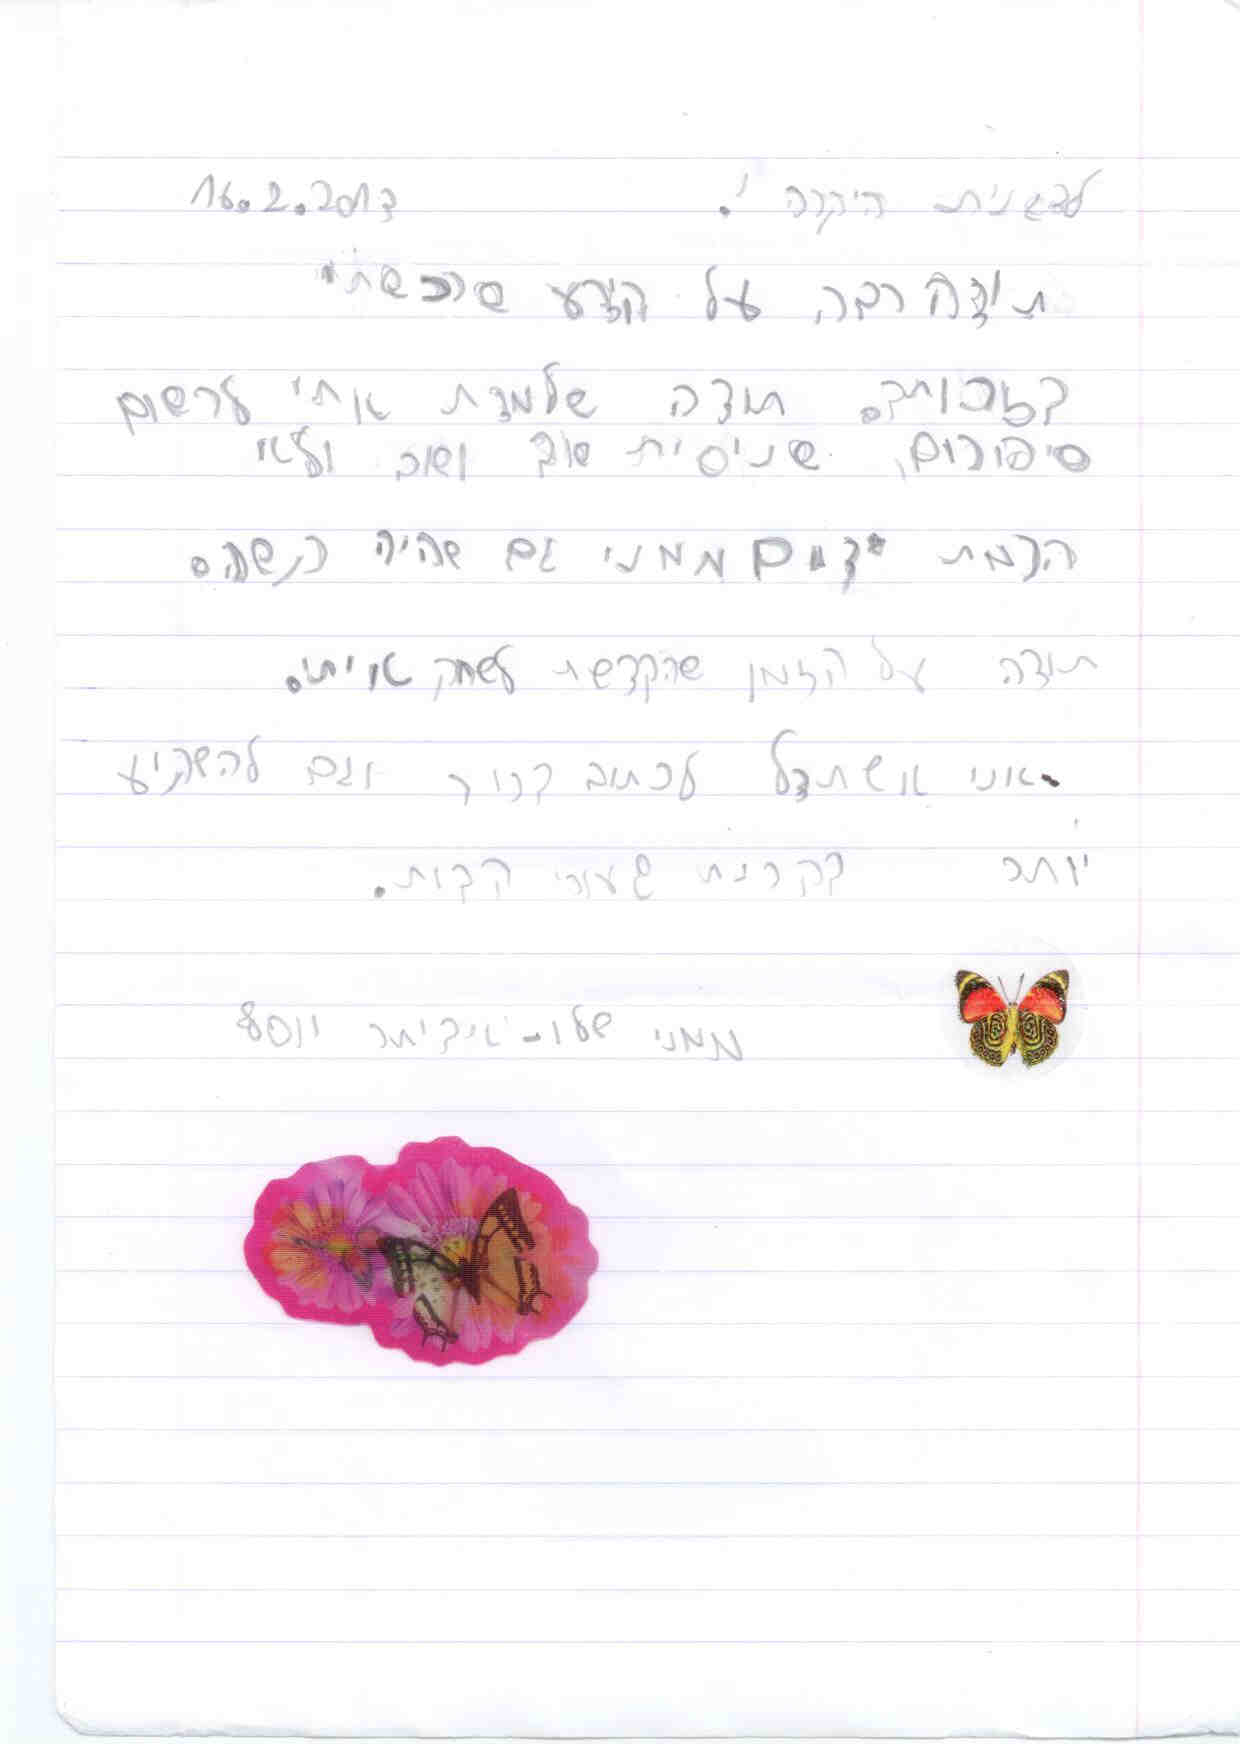 לדגנית היקרה ! 16.2.2013
תודה רבה על הידע שרכשתי
בזכותך. תודה שלמדת אתי לרשום
סיפורים, שניסית שוב ושוב ולא
הרמת ידים ממני גם שהיה קשה.
תודה על הזמן שהקדשת לשחק איתי.
אני אשתדל לכתוב ברור וגם להשקיע
יותר בקריאת שעורי הבית.
ממני שלו - אביתר יוסף